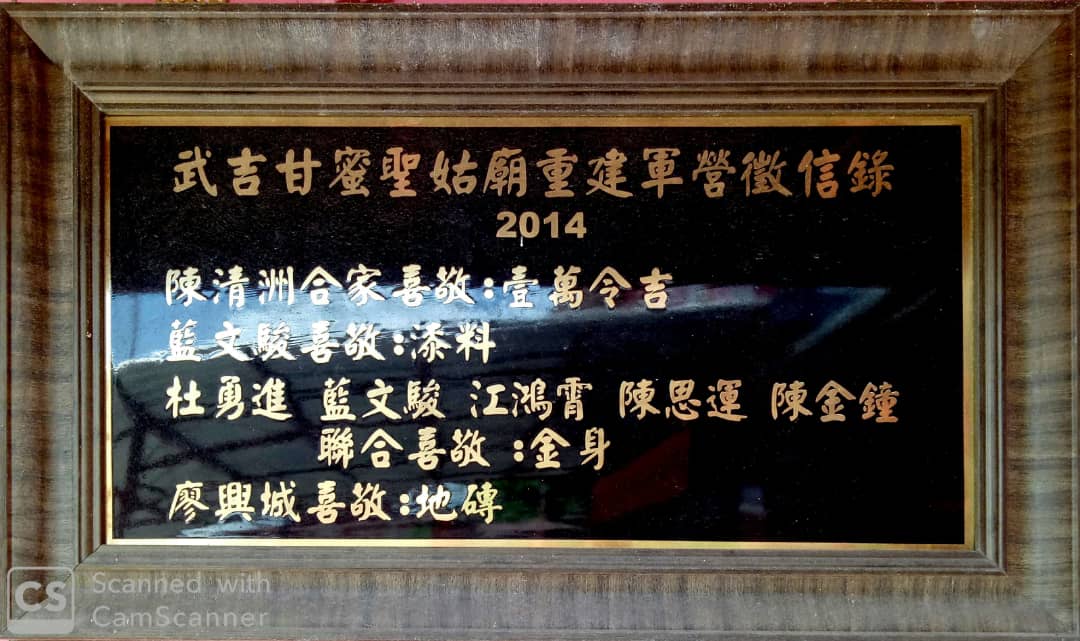 武吉甘蜜聖姑廟重建軍營徵信錄
2014
陳清洲合家喜敬:壹萬令吉
藍文駿喜敬:漆料
杜勇進 藍文駿 江鴻霄 陳思運 陳金鐘
聯合喜敬 :金身
廖興城喜敬:地磚
CS Scanned with
CamScanner